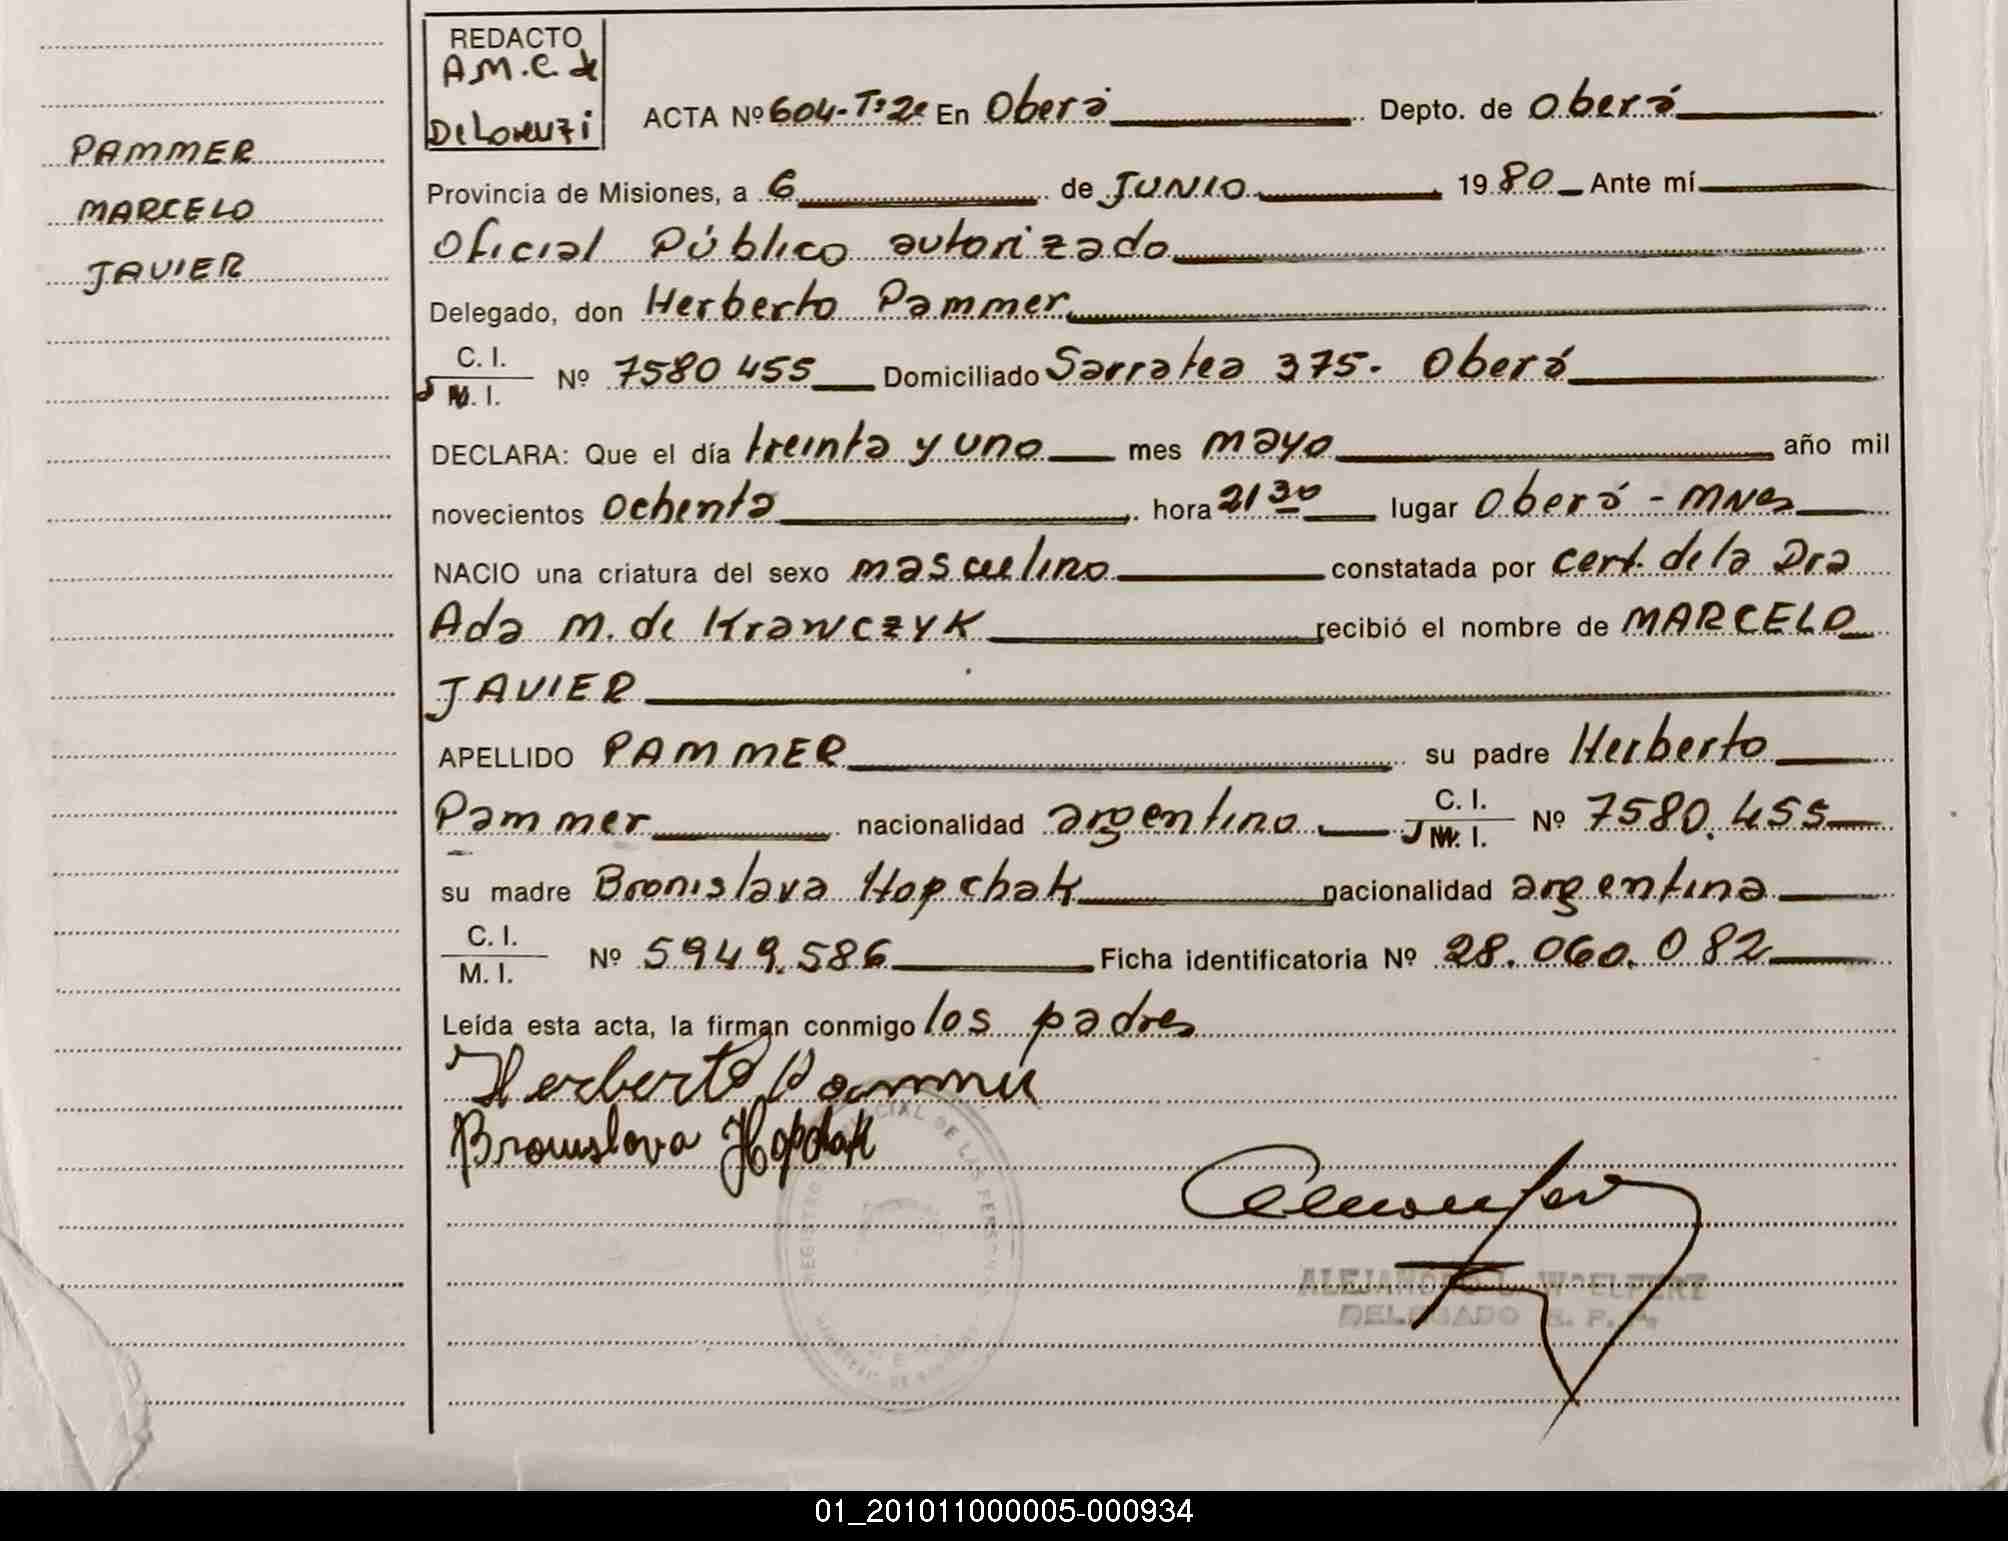 REDACTO
A.M.C. de
De Lorenzi
ACTA Nº 604-Tº2º En Oberá Depto. de Oberá
PAMMER
MARCELO
JAVIER
Provincia de Misiones, a 6 de JUNIO 1980 Ante mí
Oficial Público autorizado
Delegado, don Herberto Pammer
C. I.
M. I. Nº 7580455 Domiciliado Sarratea 375. Oberá
DECLARA: Que el día treinta y uno mes mayo año mil
novecientos ochenta hora 21 30 lugar Oberá - Mnes
NACIO una criatura del sexo masculino constatada por cert. de la Dra
Ada M. de Krawczyk recibió el nombre de MARCELO
JAVIER
APELLIDO PAMMER su padre Herberto
Pammer nacionalidad argentino C. I.
M. I. Nº 7580.455
su madre Bronislava Hopchak nacionalidad argentina
C. I.
M. I. Nº 5949.586 Ficha identificatoria Nº 28.060.082
Leída esta acta, la firman conmigo los padres
Herberto Pammer
Bronislava Hopchak
REGISTRO CIAL DE LAS PERS
ALEJANDRO WOELFERT
DELEGADO R. P. P.
01_201011000005-000934